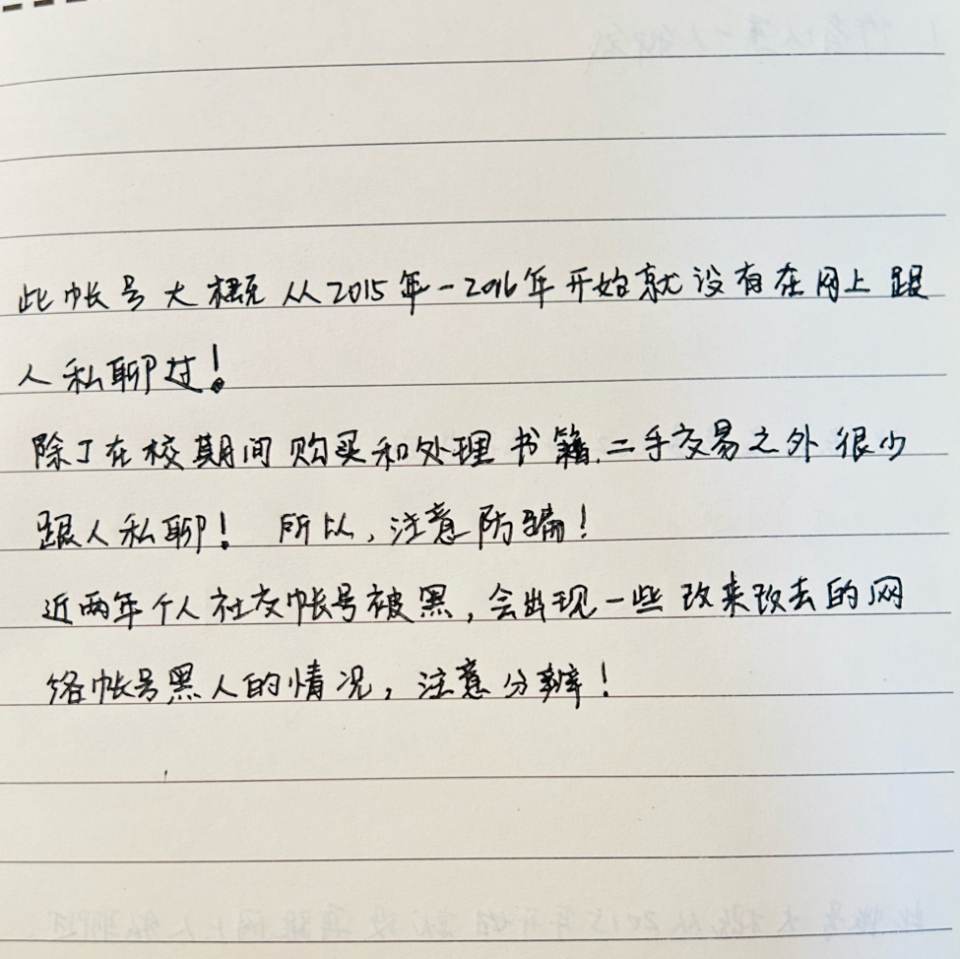 此帐号大概从2015年-2016年开始就没有在网上跟
人私聊过！
除了在校期间购买和处理书籍、二手交易之外很少
跟人私聊！ 所以，注意防骗！
近两年个人社交帐号被黑，会出现一些改来改去的网
络帐号黑人的情况，注意分辨！